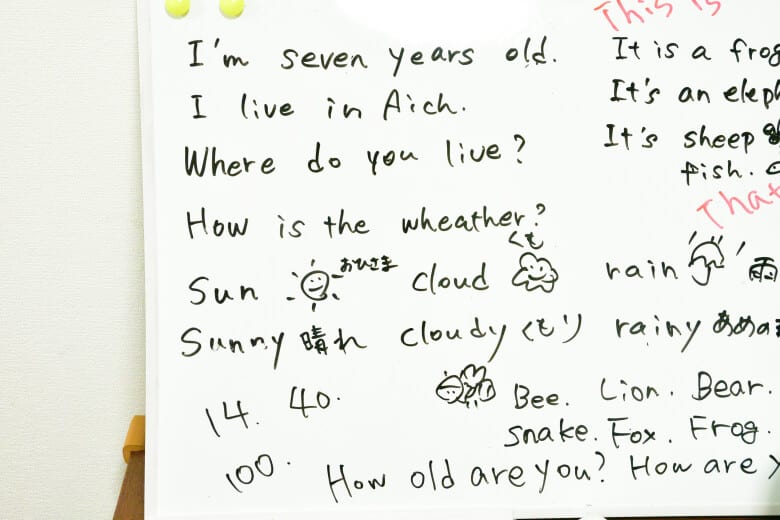 This is
I'm seven years old.
It is a frog
I live in Aich.
It's an eleph
Where do you live?
It's sheep
fish.
That
How is the wheather?
Sun おひさま cloud くも rain 雨
Sunny 晴れ cloudy くもり rainy あめの
14. 40.
Bee. Lion. Bear.
snake. Fox. Frog.
100.
How old are you? How are y